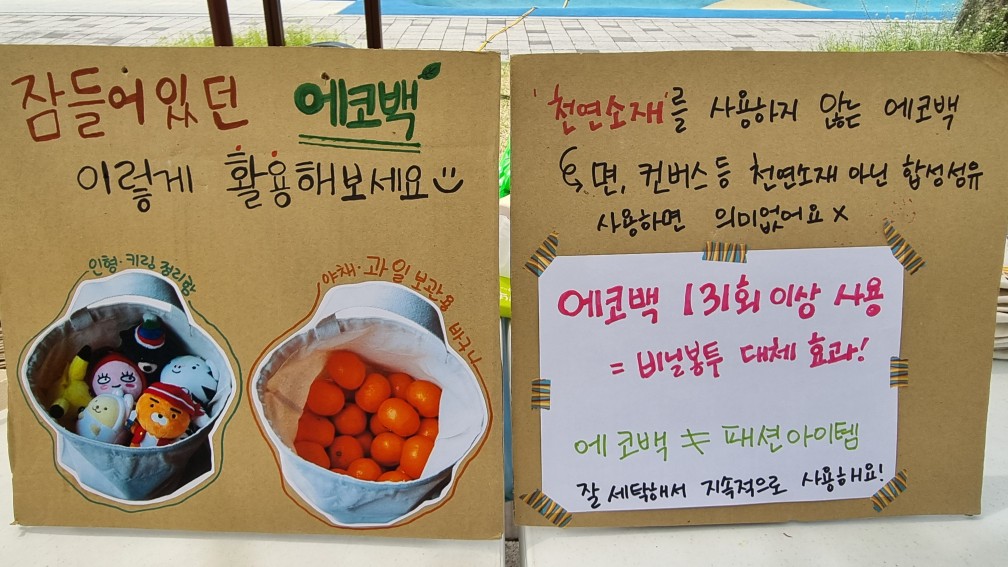 잠들어있던 에코백
이렇게 활용해보세요
인형·키링 정리함
야채·과일 보관용 바구니
'천연소재'를 사용하지 않는 에코백
면, 컨버스 등 천연소재 아닌 합성섬유
사용하면 의미없어요 x
에코백 131회 이상 사용
= 비닐봉투 대체 효과!
에코백 ≠ 패션아이템
잘 세탁해서 지속적으로 사용해요!